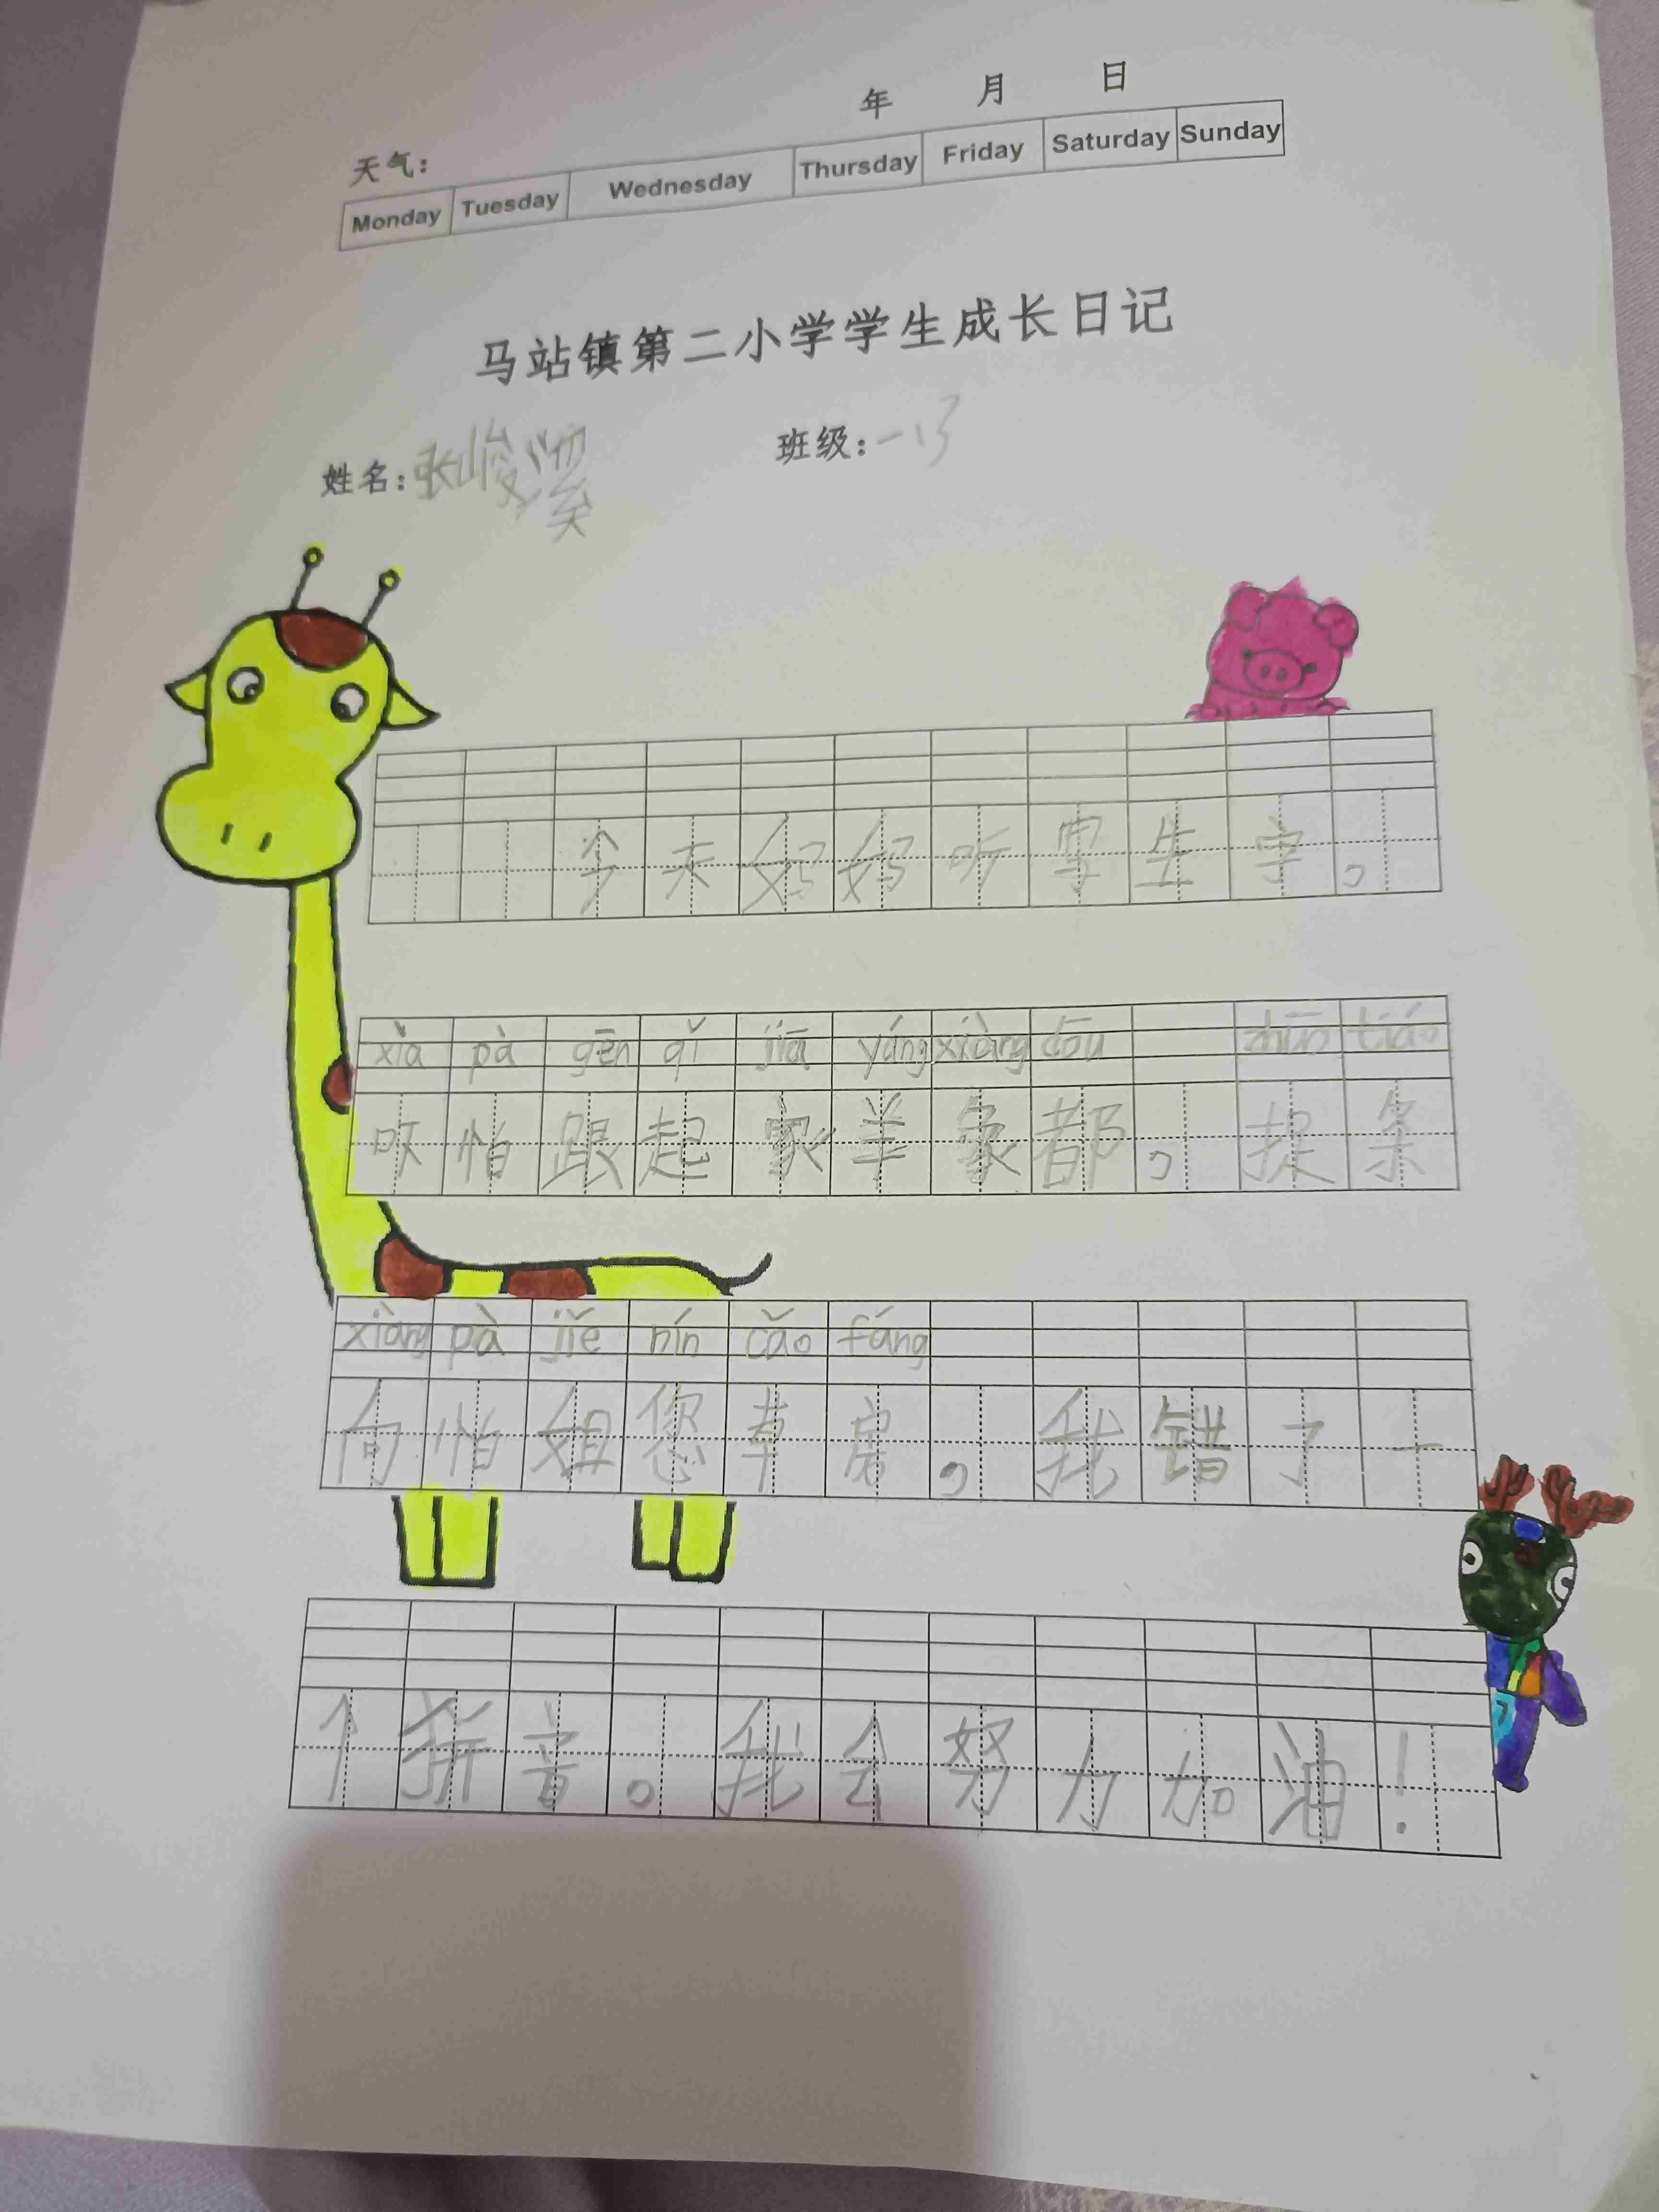 年 月 日
天气：
Monday Tuesday Wednesday Thursday Friday Saturday Sunday
马站镇第二小学学生成长日记
姓名：张峻溪 班级：一13
今天妈妈听写生字。
xià pà gēn qǐ jiā yáng xiàng dōu tiáo
吓怕跟起家羊象都，捉条
xiàng pà jiě nín cǎo fáng
向怕姐您草房，我错了一
个拼音。我会努力加油！